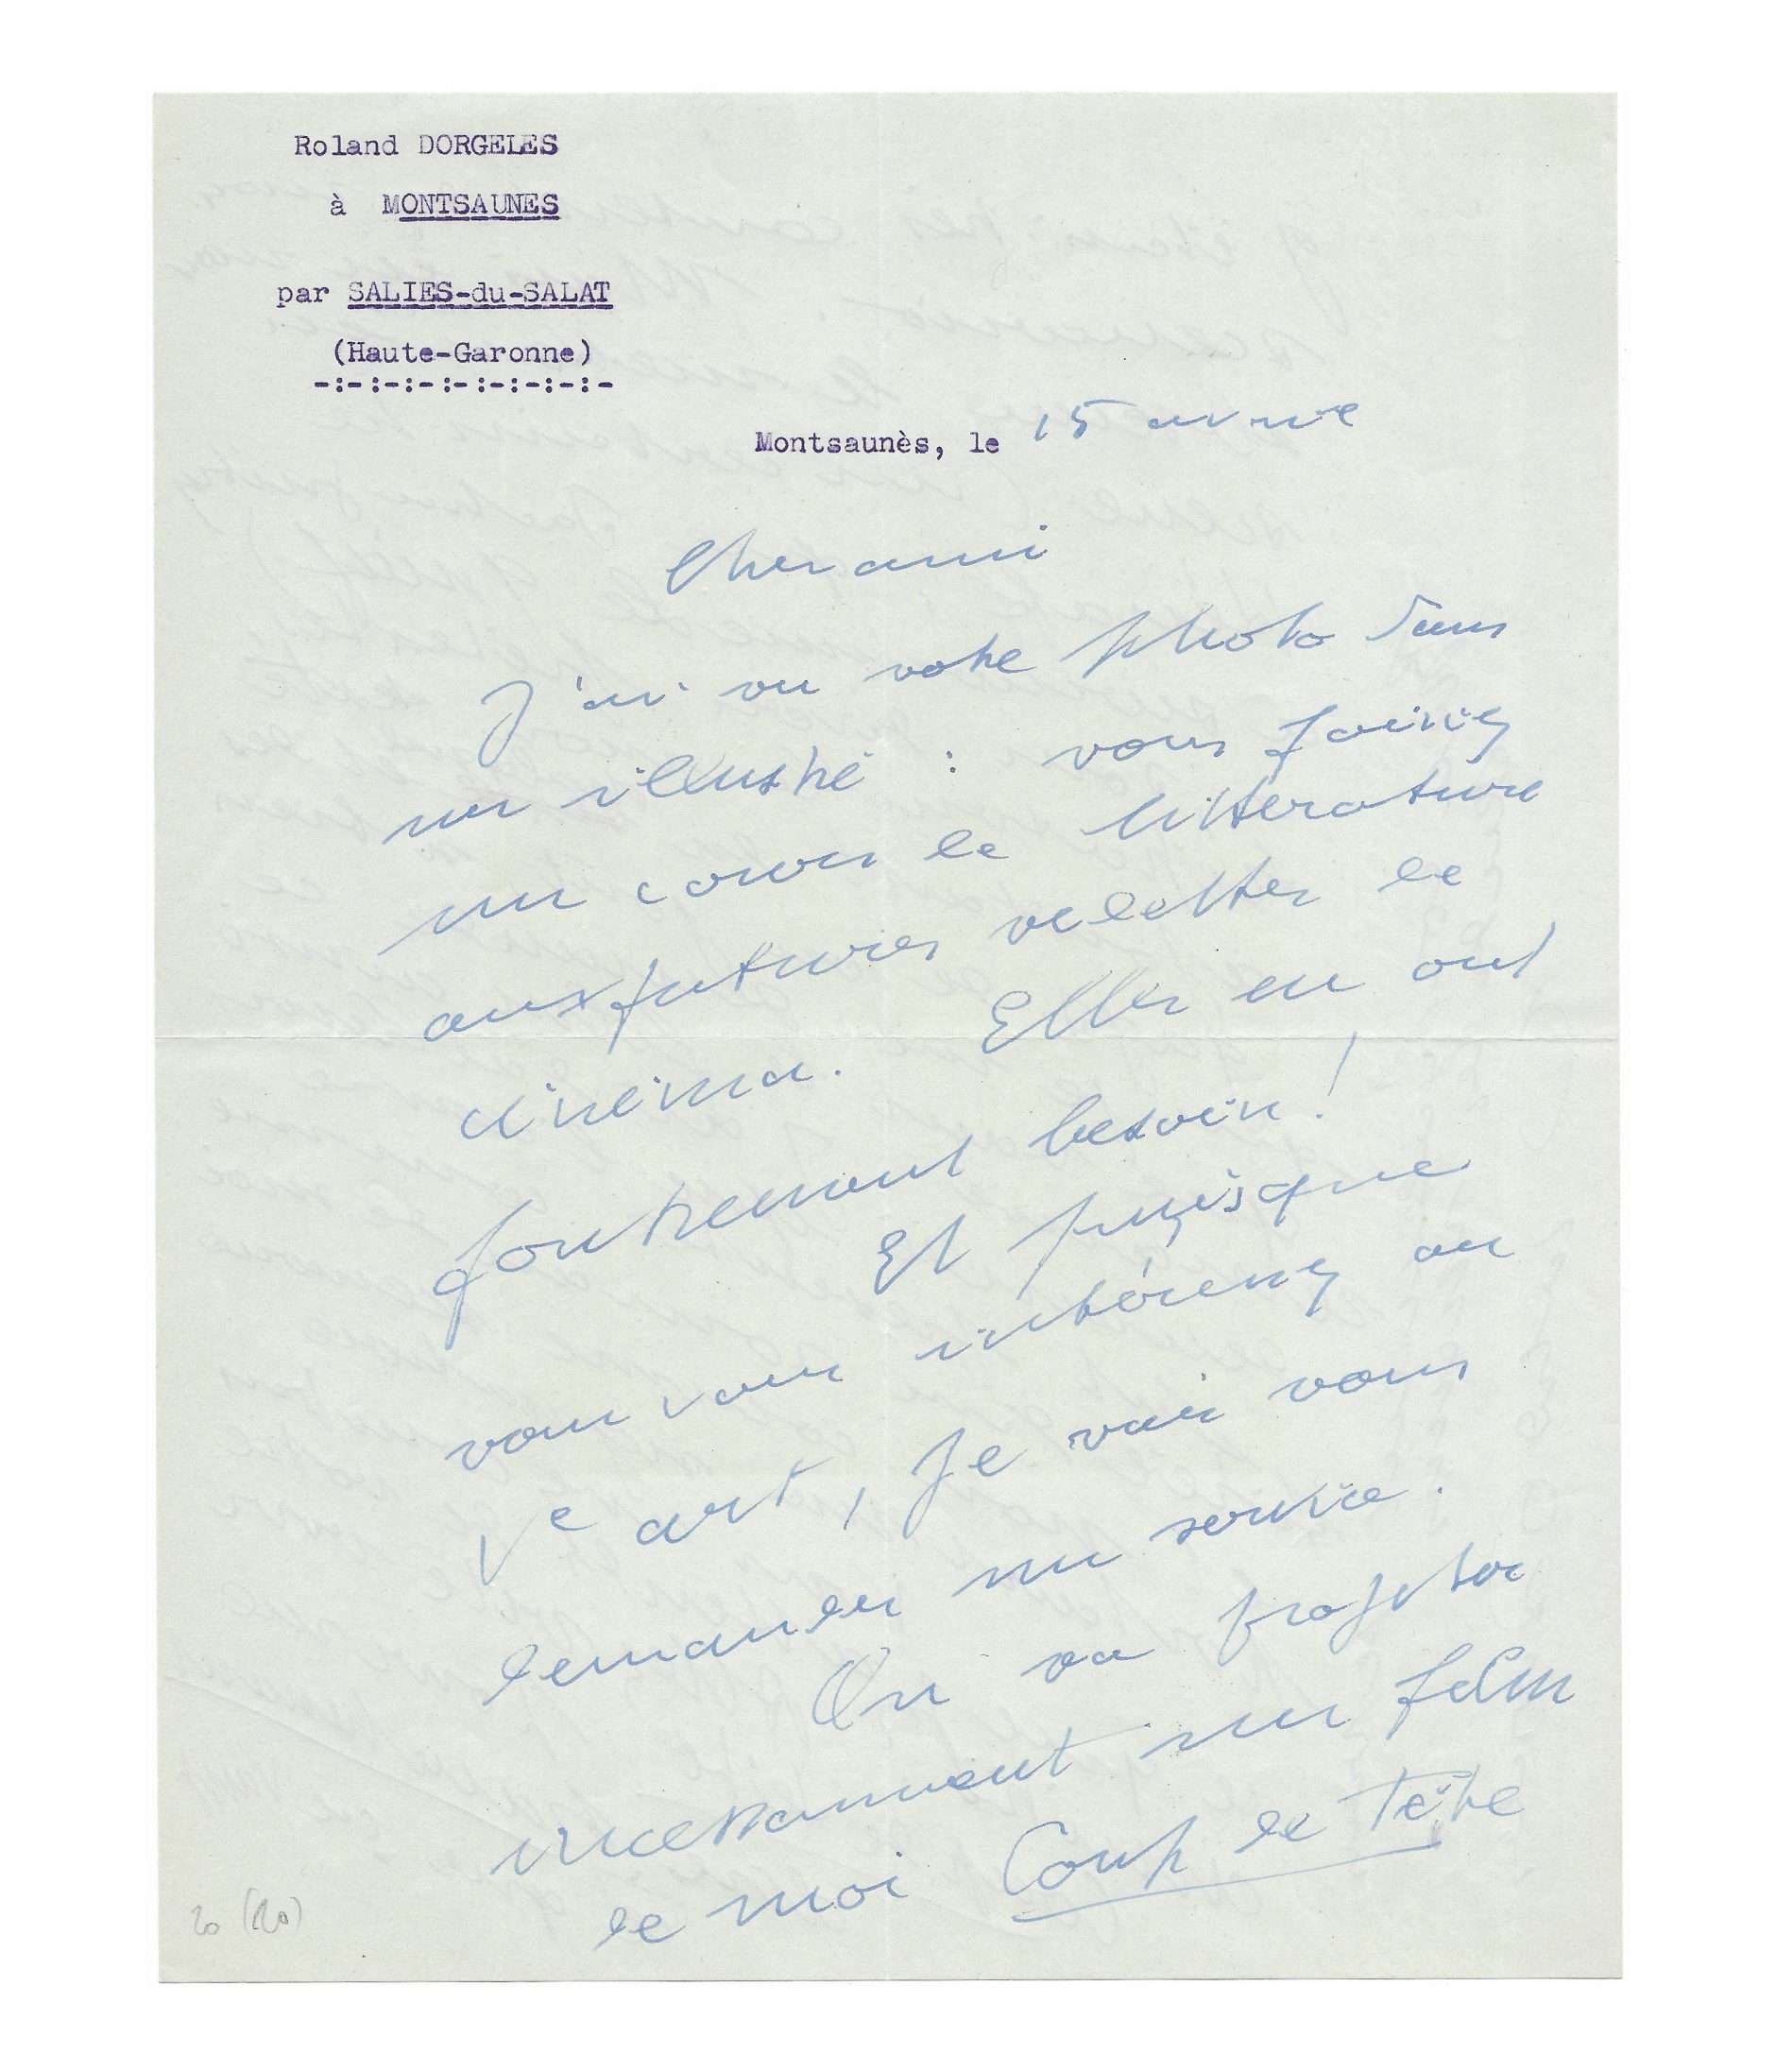 Roland DORGELES
à MONTSAUNES
par SALIES-du-SALAT
(Haute-Garonne)
-:-:-:-:-:-:-:-:-
Montsaunès, le 15 avril
Cher ami
J'ai vu votre photo dans
un illustré : vous faisiez
un cours de littérature
aux futures vedettes de
cinéma. Elles en ont
foutrement besoin !
Et puisque
vous vous intéressez au
Ve art, je vais vous
demander un service.
On va projeter
incessamment un film
de moi Coup de Tête
20 (20)